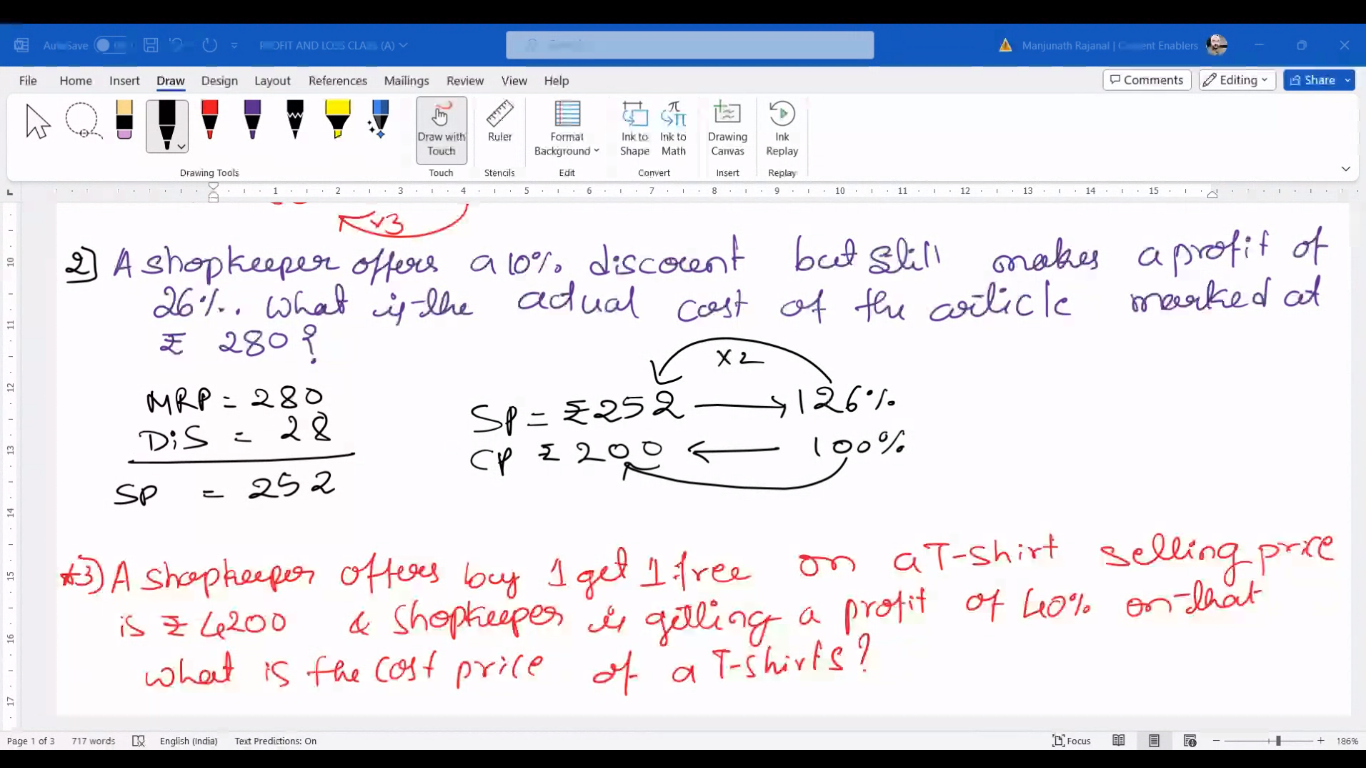 AutoSave
PROFIT AND LOSS CLASS (A)
Search
Manjunath Rajanal | Consent Enablers
File Home Insert Draw Design Layout References Mailings Review View Help
Comments Editing Share
Draw with Touch
Ruler
Format Background
Ink to Shape
Ink to Math
Drawing Canvas
Ink Replay
Drawing Tools Touch Stencils Edit Convert Insert Replay
1 2 3 4 5 6 7 8 9 10 11 12 13 14 15
×3
2] A shopkeeper offers a 10% discount but still makes a profit of
26%. What is the actual cost of the article marked at
₹ 280?
×2
MRP = 280
DiS = 28
SP = 252
SP = ₹252 → 126%
CP ₹ 200 ← 100%
*3) A shopkeeper offers buy 1 get 1 free on a T-shirt selling price
is ₹ 4200 & shopkeeper is getting a profit of 40% on that
what is the cost price of a T-shirts?
10
11
12
13
14
15
16
17
Page 1 of 3 717 words English (India) Text Predictions: On Focus 186%